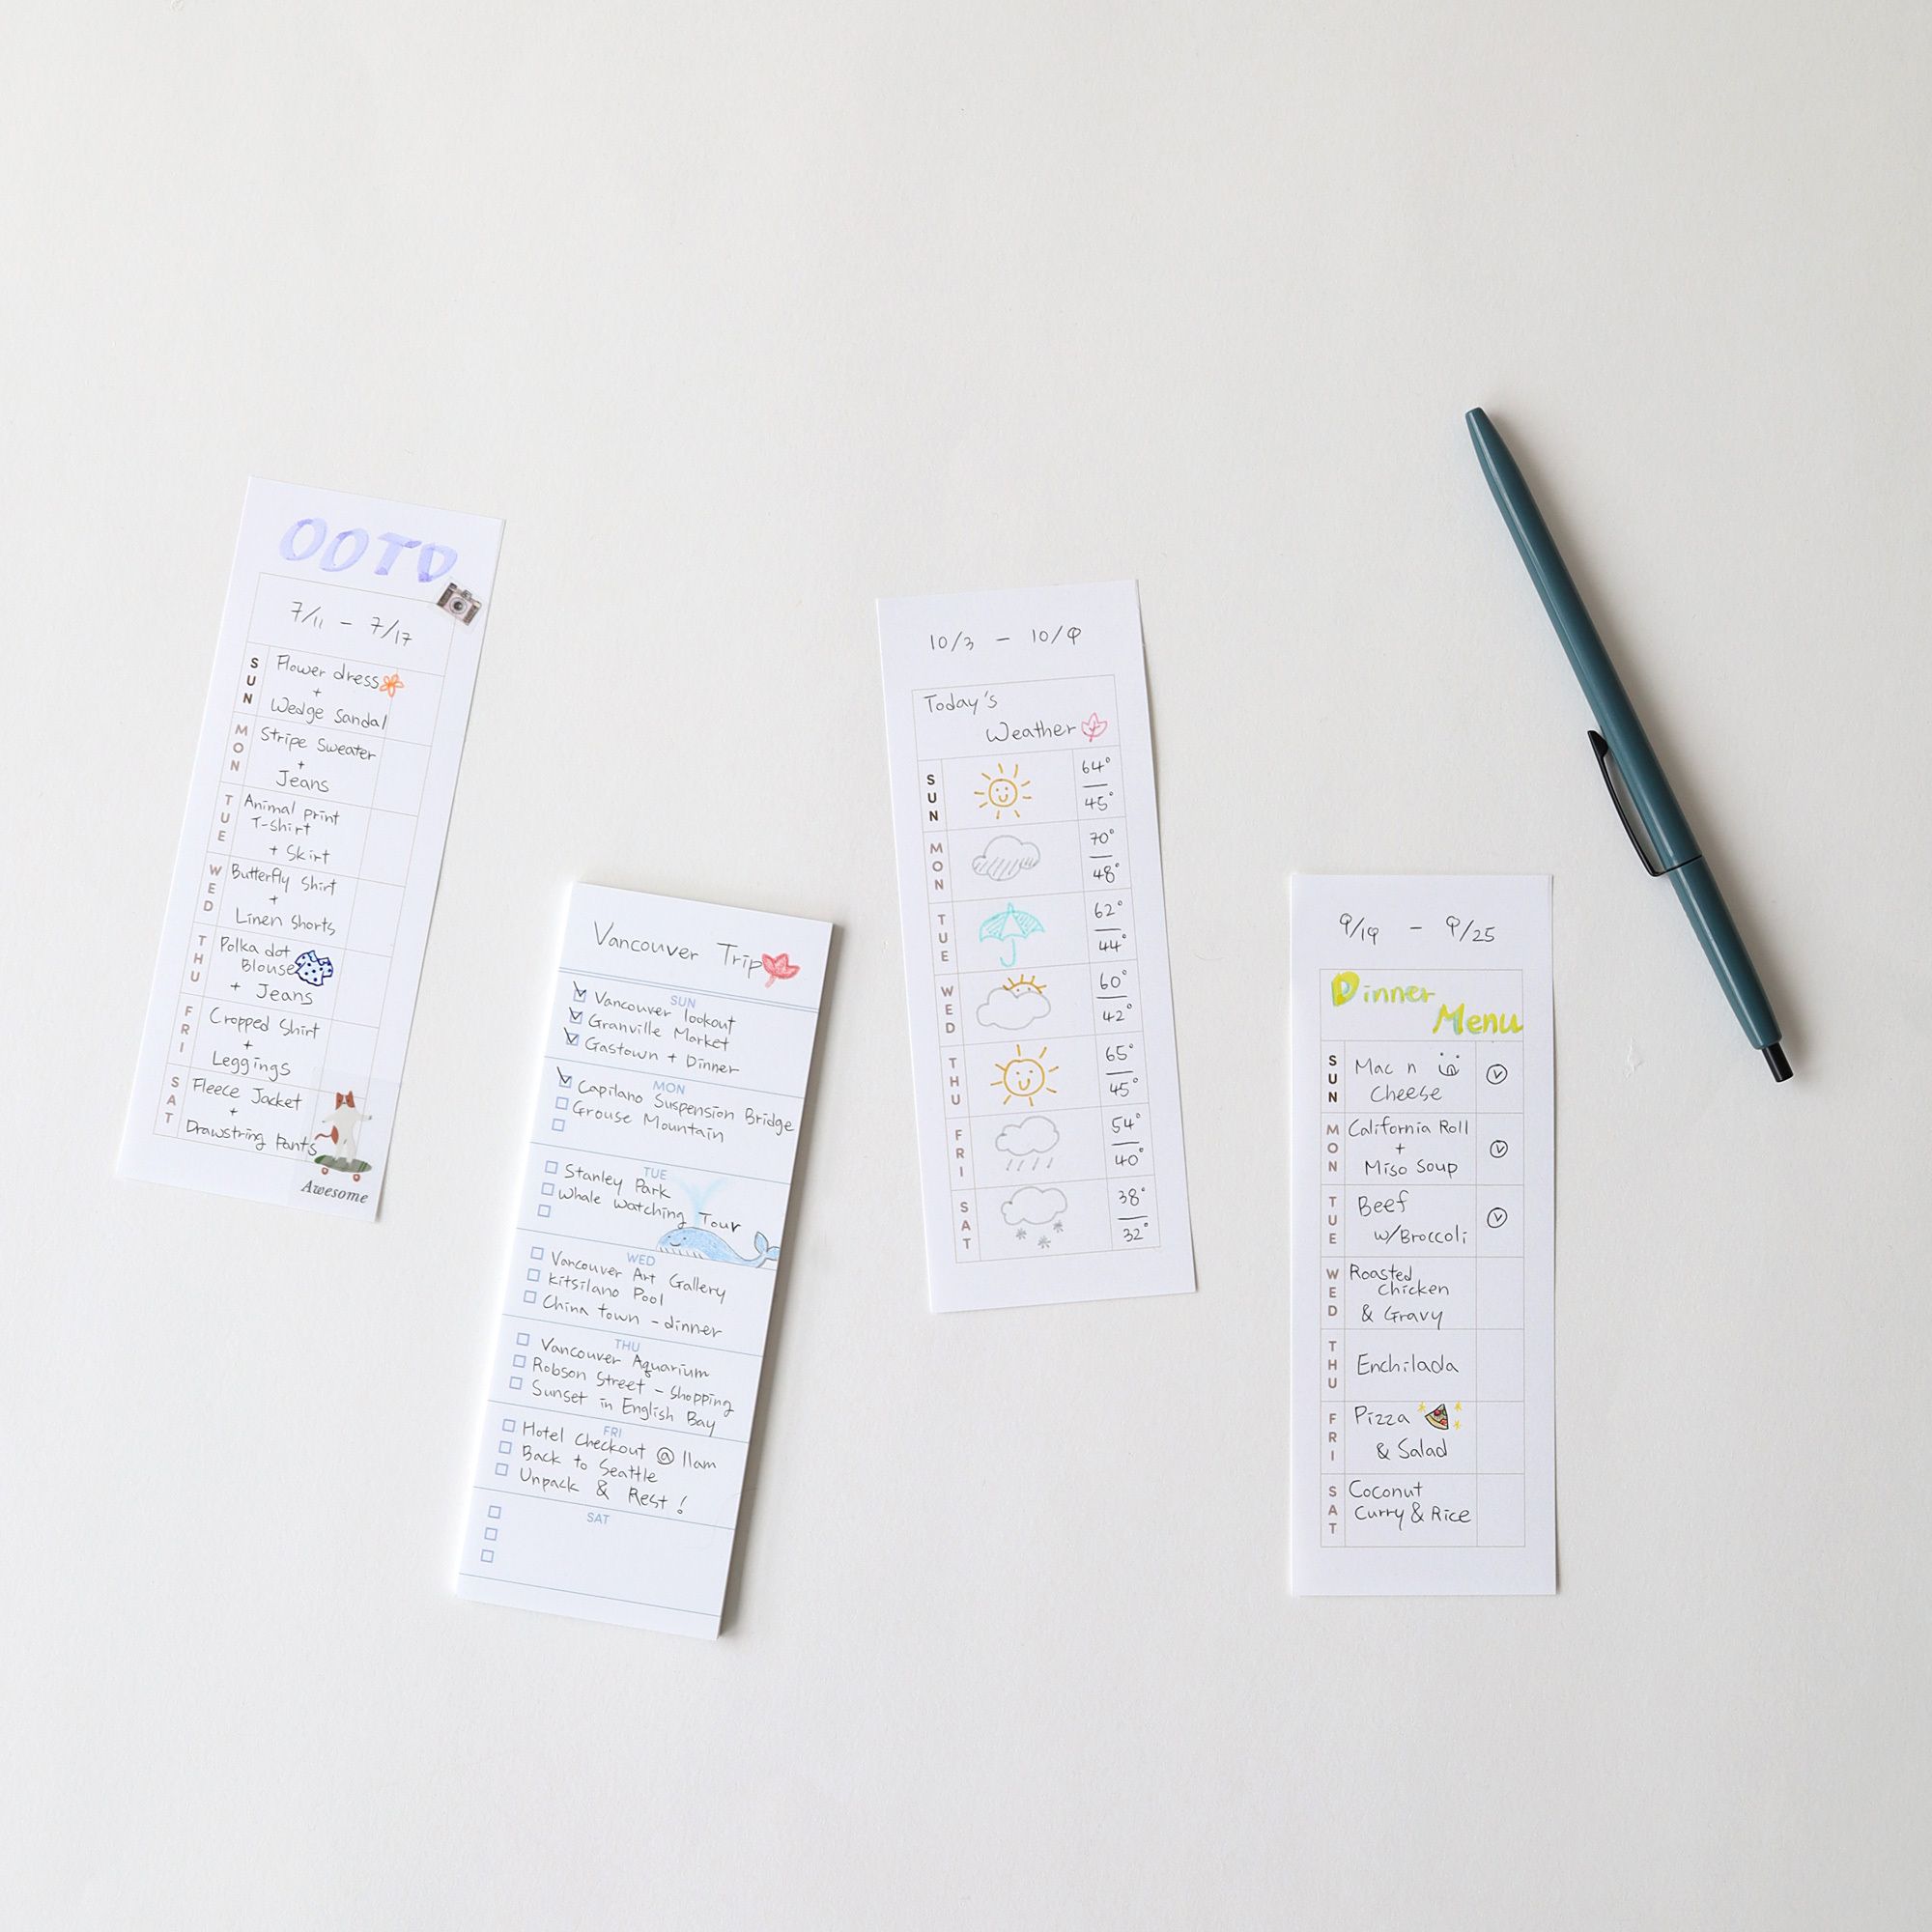 OOTD
7/11 - 7/17
SUN
Flower dress
+
Wedge Sandal
MON
Stripe Sweater
+
Jeans
TUE
Animal print
T-shirt
+ Skirt
WED
Butterfly Shirt
+
Linen shorts
THU
Polka dot
Blouse
+ Jeans
FRI
Cropped Shirt
+
Leggings
SAT
Fleece Jacket
+
Drawstring Pants
Awesome
Vancouver Trip
SUN
Vancouver lookout
Granville Market
Gastown + Dinner
MON
Capilano Suspension Bridge
Grouse Mountain
TUE
Stanley Park
Whale watching Tour
WED
Vancouver Art Gallery
Kitsilano Pool
China town - dinner
THU
Vancouver Aquarium
Robson Street - Shopping
Sunset in English Bay
FRI
Hotel Checkout @ 11am
Back to Seattle
Unpack & Rest!
SAT
10/3 - 10/9
Today's
Weather
SUN
64°
45°
MON
70°
48°
TUE
62°
44°
WED
60°
42°
THU
65°
45°
FRI
54°
40°
SAT
38°
32°
9/19 - 9/25
Dinner
Menu
SUN
Mac n
Cheese
MON
California Roll
+
Miso Soup
TUE
Beef
w/Broccoli
WED
Roasted
Chicken
& Gravy
THU
Enchilada
FRI
Pizza
& Salad
SAT
Coconut
Curry & Rice